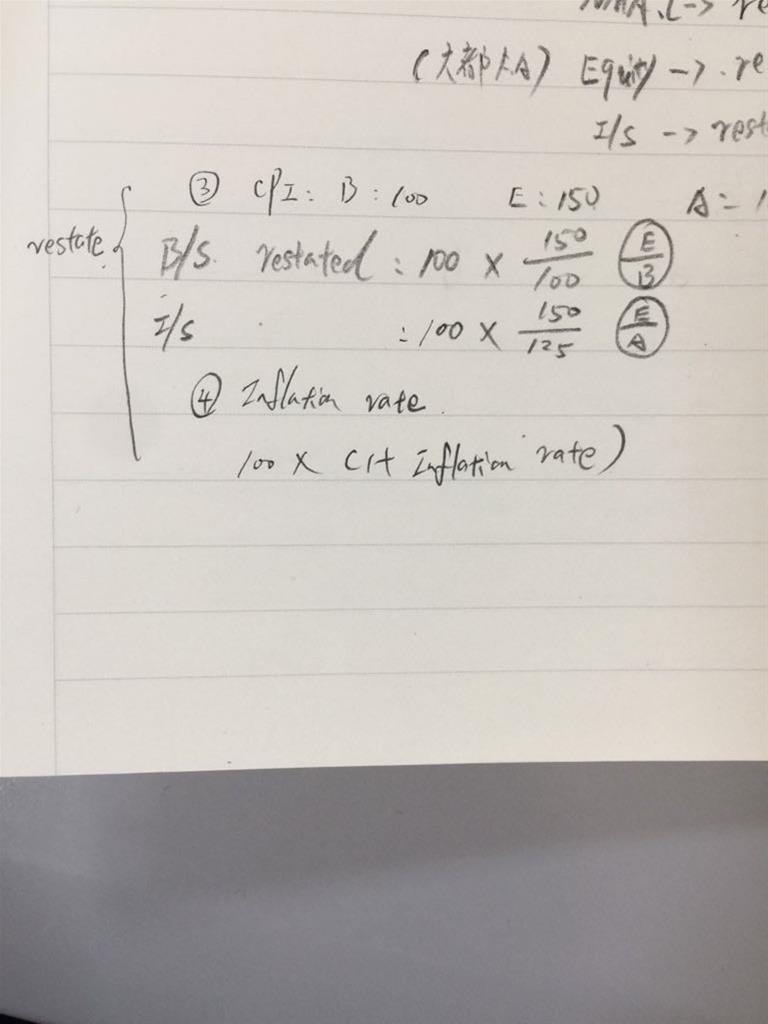 → re
(大部分) Equity → re
I/S → rest
③ CPI: B: 100 E: 150 A = 1
restate
B/S restated: 100 × 150/100 E/B
I/S : 100 × 150/125 E/A
④ Inflation rate.
100 × (1+ Inflation rate)